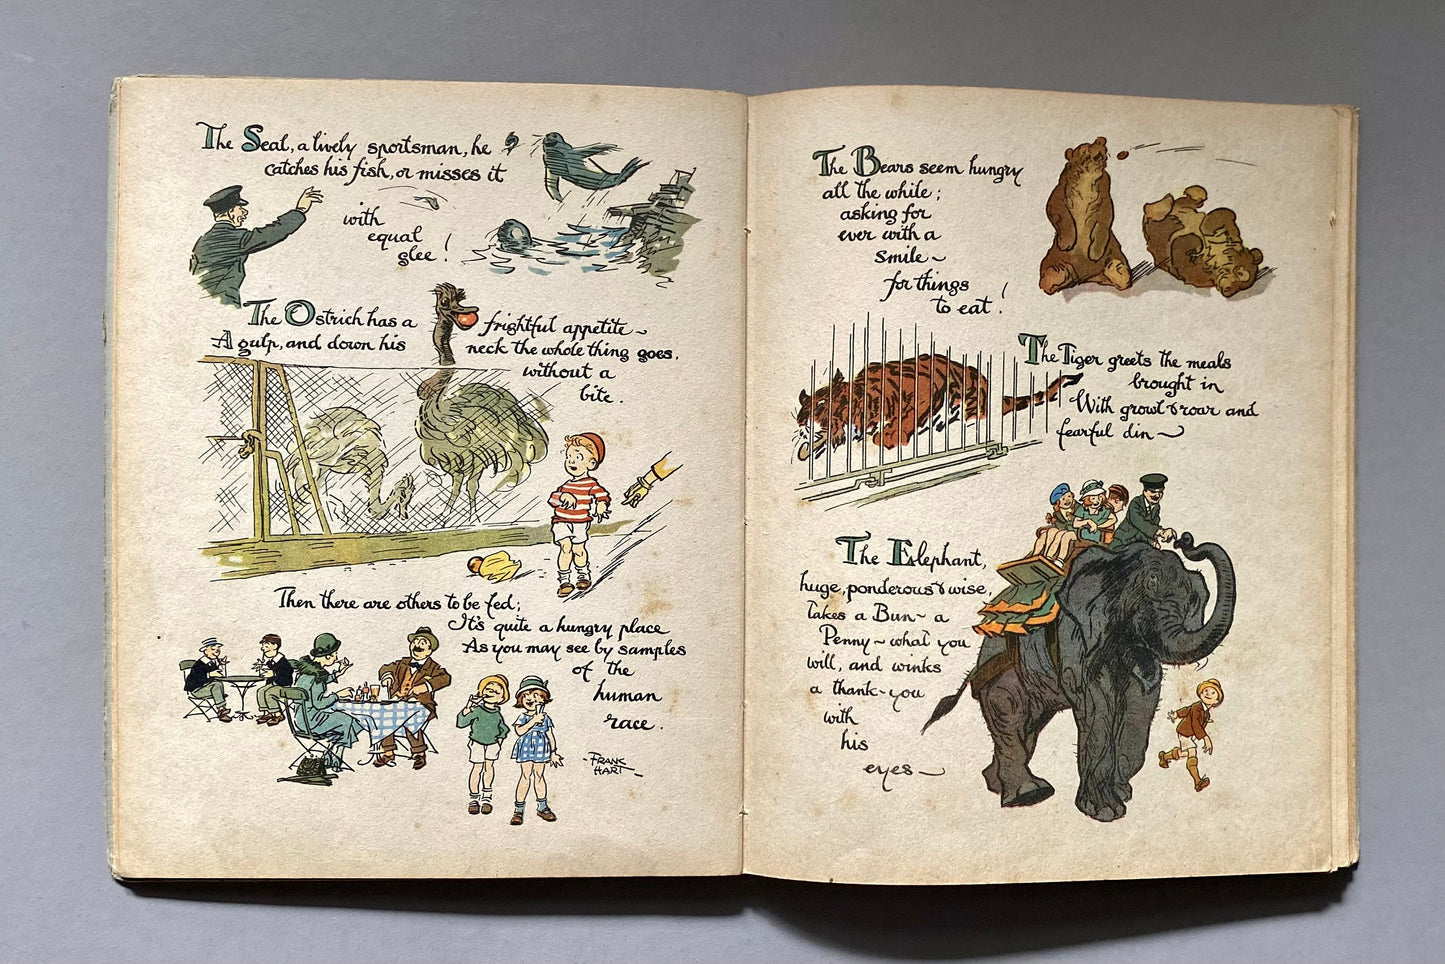 The Seal, a lively sportsman, he
catches his fish, or misses it
with
equal
glee!
The Ostrich has a frightful appetite ~
A gulp, and down his neck the whole thing goes,
without a
bite.
Then there are others to be fed;
It's quite a hungry place
As you may see by samples
of the
human
race.
- FRANK
HART -
The Bears seem hungry
all the while;
asking for
ever with a
smile ~
for things
to eat!
The Tiger greets the meals
brought in
With growl & roar and
fearful din ~
The Elephant,
huge, ponderous & wise,
takes a Bun ~ a
Penny ~ what you
will, and winks
a thank-you
with
his
eyes ~